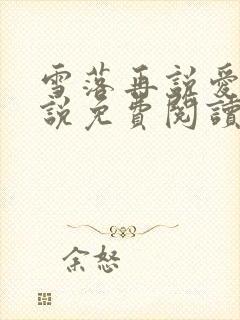 雪落再說愛
說免費閱讀
余怒